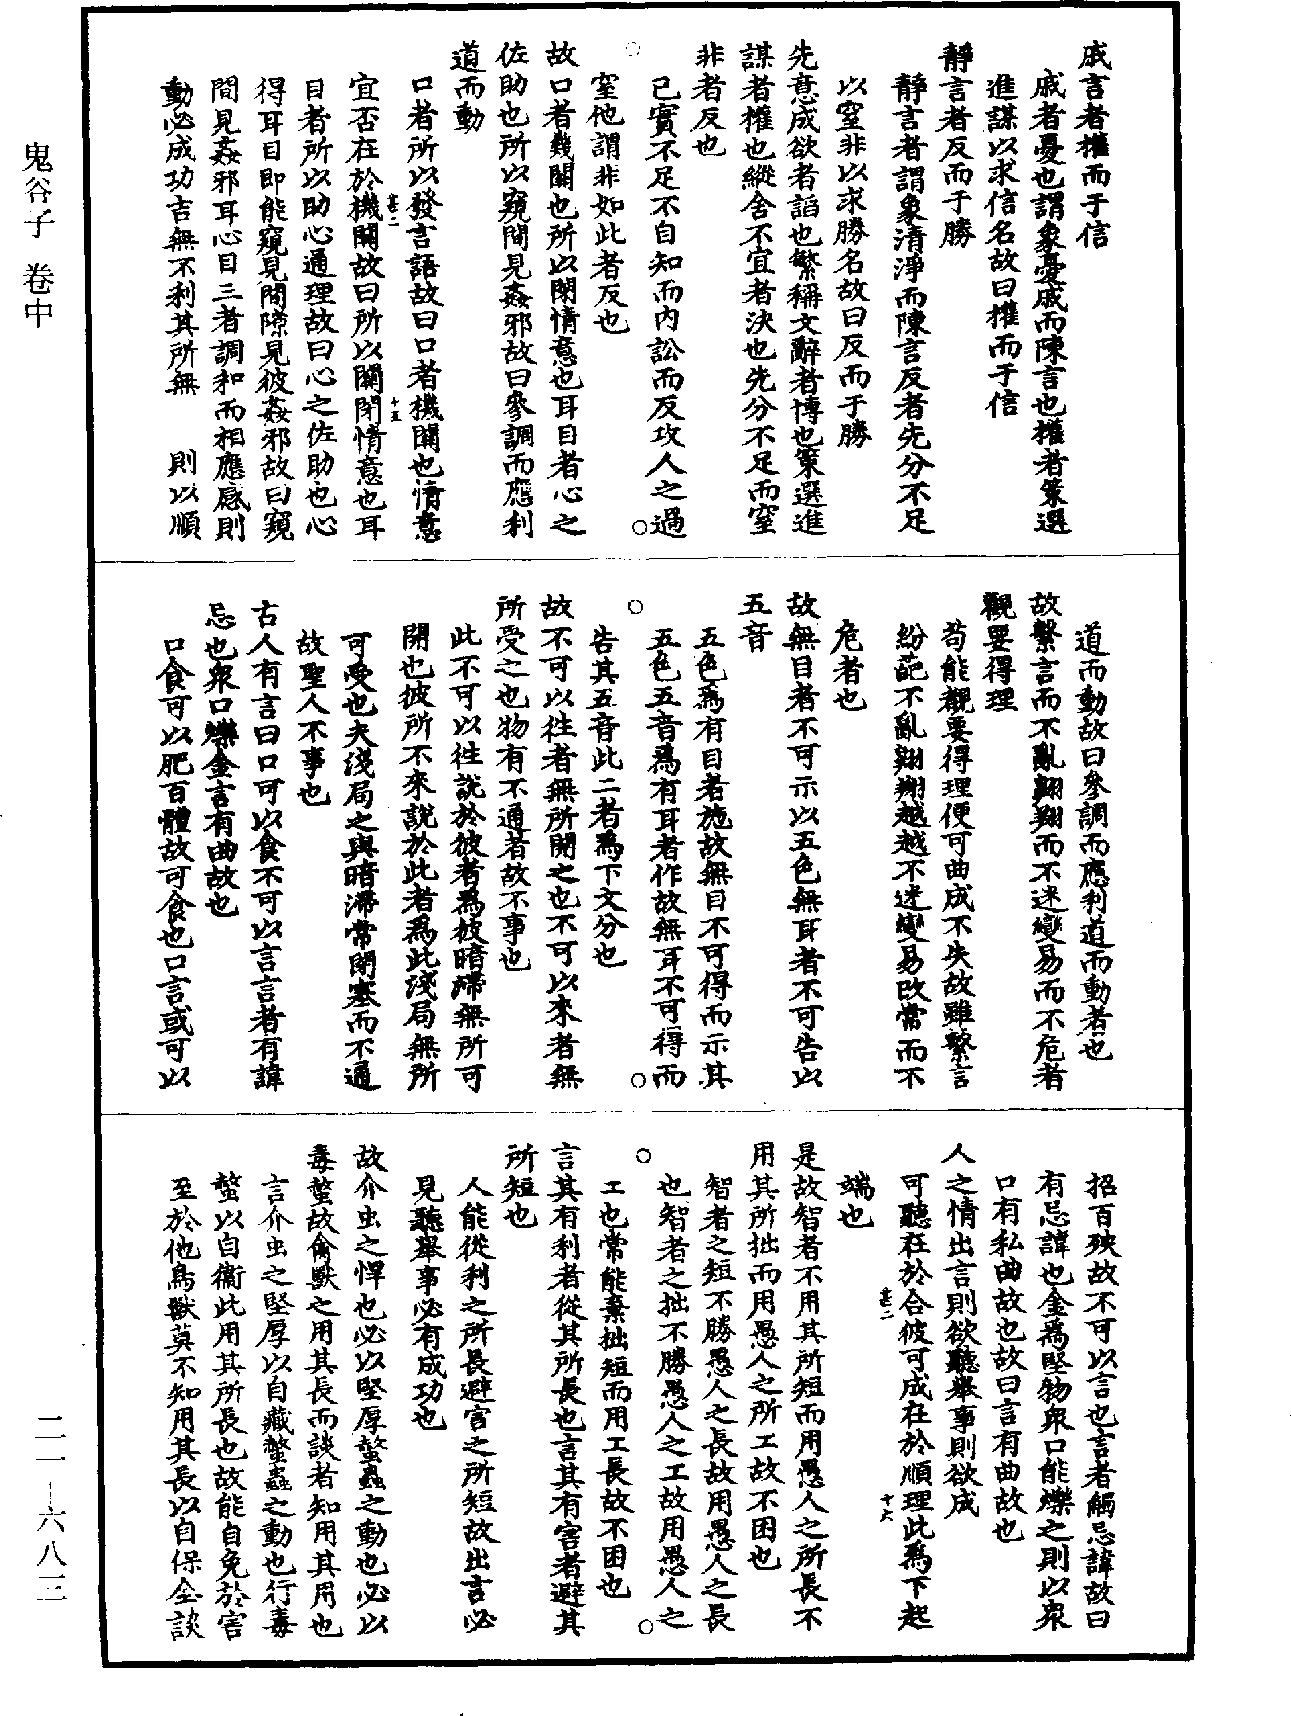 鬼谷子 卷中
戚言者權而于信
戚者憂也謂象憂戚而陳言也權者策選
進謀以求信名故曰權而于信
靜言者反而于勝
靜言者謂象清淨而陳言反者先分不足
以窒非以求勝名故曰反而于勝
先意成欲者諂也繁稱文辭者博也策選進
謀者權也縱舍不宜者決也先分不足而窒
非者反也
己實不足不自知而內訟而反攻人之過
窒他謂非如此者反也
故口者幾關也所以閉情意也耳目者心之
佐助也所以窺間見姦邪故曰參調而應利
道而動
口者所以發言語故曰口者機關也情意
宜否在於機關故曰所以關閉情意也耳
目者所以助心通理故曰心之佐助也心
得耳目即能窺見間隙見彼姦邪故曰窺
間見姦邪耳心目三者調和而相應感則
動必成功吉無不利其所無 則以順
甚二
十五
道而動故曰參調而應利道而動者也
故繫言而不亂翱翔而不迷變易而不危者
觀要得理
苟能觀要得理便可曲成不失故雖繫言
紛葩不亂翱翔越越不迷變易改常而不
危者也
故無目者不可示以五色無耳者不可告以
五音
五色為有目者施故無目不可得而示其
五色五音為有耳者作故無耳不可得而
告其五音此二者為下文分也
故不可以往者無所開之也不可以來者無
所受之也物有不通者故不事也
此不可以往說於彼者為彼暗滯無所可
開也彼所不來說於此者為此淺局無所
可受也夫淺局之與暗滯常閉塞而不通
故聖人不事也
古人有言曰口可以食不可以言言者有諱
忌也眾口爍金言有曲故也
口食可以肥百體故可食也口言或可以
招百殃故不可以言也言者觸忌諱故曰
有忌諱也金為堅物眾口能爍之則以眾
口有私曲故也故曰言有曲故也
人之情出言則欲聽舉事則欲成
可聽在於合彼可成在於順理此為下起
端也
甚二
十六
是故智者不用其所短而用愚人之所長不
用其所拙而用愚人之所工故不困也
智者之短不勝愚人之長故用愚人之長
也智者之拙不勝愚人之工故用愚人之
工也常能棄拙短而用工長故不困也
言其有利者從其所長也言其有害者避其
所短也
人能從利之所長避害之所短故出言必
見聽舉事必有成功也
故介虫之悍也必以堅厚螫蟲之動也必以
毒螫故禽獸之用其長而談者知用其用也
言介虫之堅厚以自藏螫蟲之動也行毒
螫以自衞此用其所長也故能自免於害
至於他鳥獸莫不知用其長以自保全談
二一—六八三